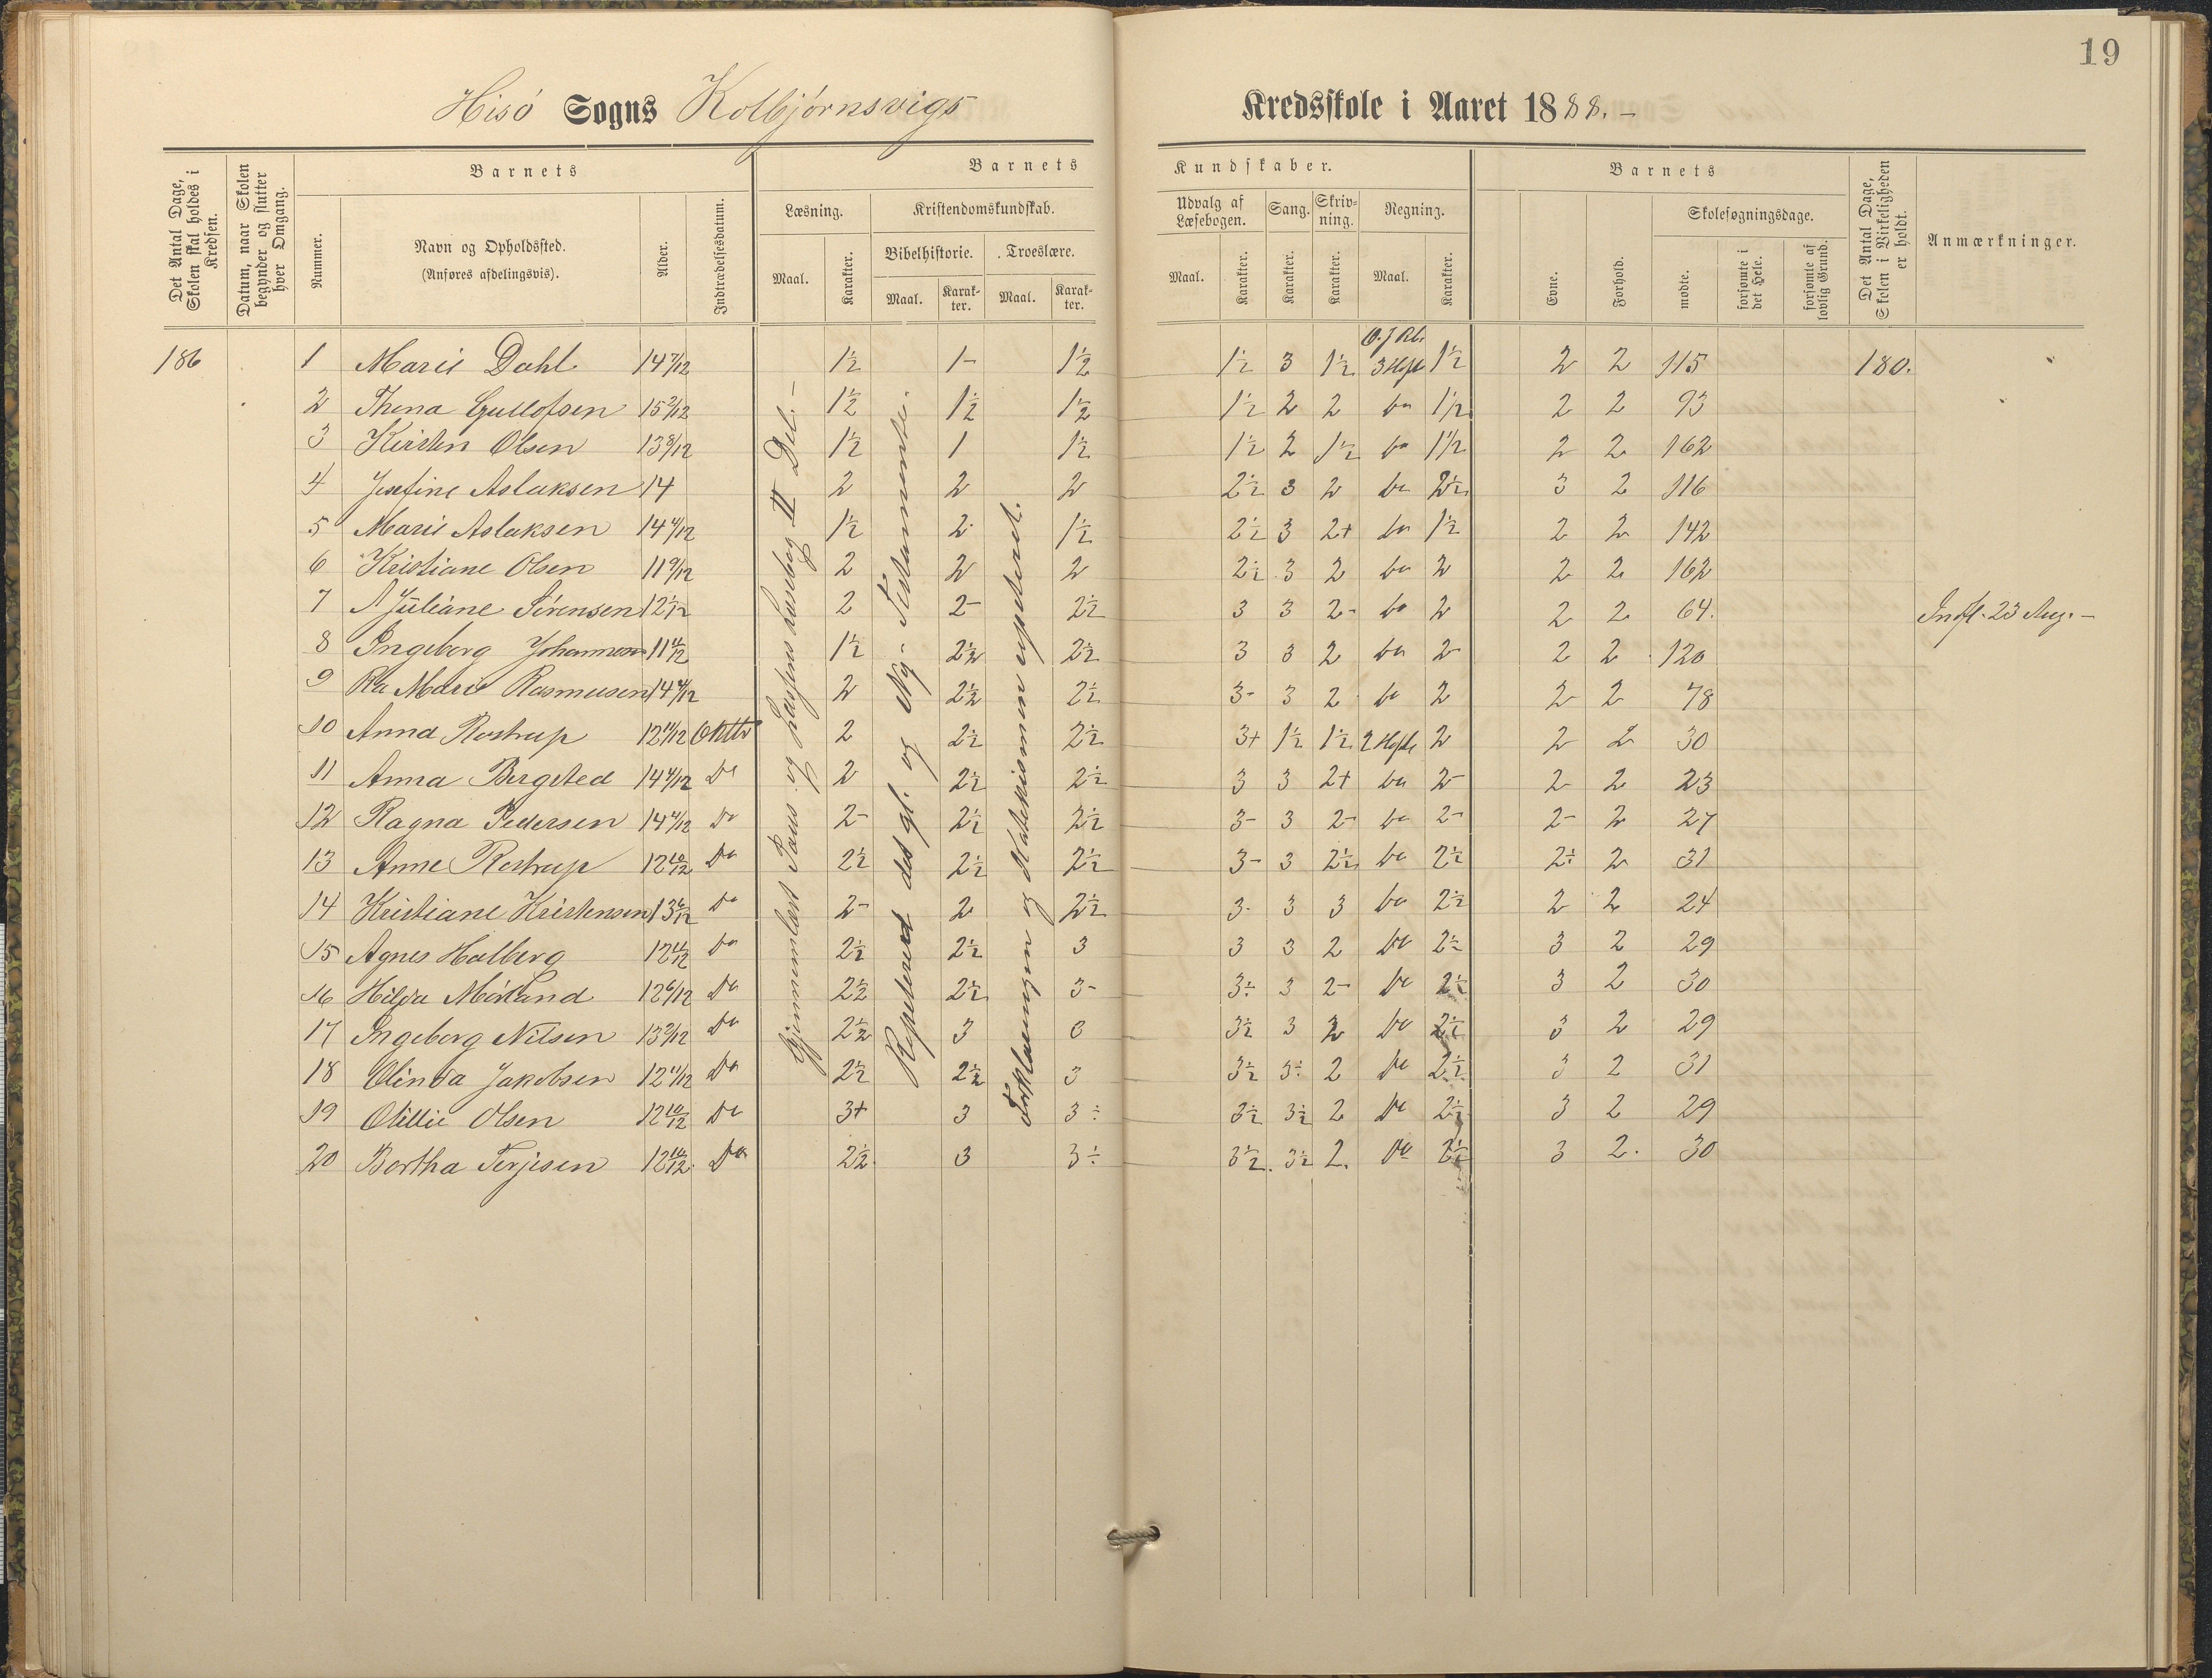 19
Hisö Sogns Kolbjörnsvigs Kredsskole i Aaret 1888.-
Det Antal Dage, Skolen skal holdes i Kredsen.
Datum, naar Skolen begynder og slutter hver Omgang.
Barnets
Nummer.
Navn og Opholdssted.
(Anføres afdelingsvis).
Alder.
Indtrædelsesdatum.
Barnets Kundskaber.
Læsning.
Maal.
Karakter.
Kristendomskundskab.
Bibelhistorie.
Maal.
Karakter.
Troeslære.
Maal.
Karakter.
Udvalg af Læsebogen.
Maal.
Karakter.
Sang.
Karakter.
Skrivning.
Karakter.
Regning.
Maal.
Karakter.
Barnets
Evne.
Forhold.
Skolesøgningsdage.
mødte.
forsømte i det Hele.
forsømte af lovlig Grund.
Det Antal Dage, Skolen i Virkeligheden er holdt.
Anmærkninger.
186 1 Marie Dahl 14 7/12 1½ 1- 1½ 1½ 3 1½ 3 Hefte 1½ 2 2 115 180.
2 Thena Gullofsen 15 2/12 1½ 1½ 1½ 1½ 2 2 do 1½ 2 2 93
3 Kirsten Olsen 13 8/12 1½ 1 1½ 1½ 2 1½ do 1½ 2 2 162
4 Josefine Aslaksen 14 2 2 2 2½ 3 2 do 2½ 3 2 116
5 Marie Aslaksen 14 4/12 1½ 2 1½ 2½ 3 2+ do 1½ 2 2 142
6 Kristiane Olsen 11 9/12 2 2 2 2½ 3 2 do 2 2 2 162
7 A Juliane Sörensen 12 1/12 2 2- 2½ 3 3 2- do 2 2 2 64. Infl. 23 Aug. -
8 Ingeborg Johannesen 11 11/12 1½ 2½ 2½ 3 3 2 do 2- 2 2 120
9 Ka Marie Rasmusen 14 4/12 2 2½ 2½ 3- 3 2 do 2 2 2 78
10 Anna Rostrup 12 11/12 Oktbr 2 2½ 2½ 3+ 1½ 1½ 2 Hefte 2 2 2 30
11 Anna Bergsted 14 4/12 Do 2 2½ 2½ 3 3 2+ do 2- 2 2 23
12 Ragna Pedersen 14 4/12 Do 2- 2½ 2½ 3- 3 2- do 2- 2- 2 27
13 Anne Rostrup 12 10/12 Do 2½ 2½ 2½ 3- 3 2½ do 2½ 2÷ 2 31
14 Kristiane Kristensen 13 6/12 Do 2- 2 2½ 3- 3 3 do 2½ 2 2 24
15 Agnes Holberg 12 11/12 Do 2½ 2½ 3 3 3 2 do 2½ 3 2 29
16 Hilda Mörland 12 6/12 Do 2½ 2½ 3- 3÷ 3 2- do 2½ 3 2 30
17 Ingeborg Nilsen 13 2/12 Do 2½ 3 3 3½ 3 2 do 2½ 3 2 29
18 Olinda Jakobsen 12 11/12 Do 2½ 2½ 3 3½ 3÷ 2 do 2½ 3 2 31
19 Otillie Olsen 12 10/12 Do 3+ 3 3÷ 3½ 3½ 2 do 2½ 3 2 29
20 Bertha Terjesen 12 10/12 Do 2½ 3 3÷ 3½ 3½ 2. do 2½ 3 2. 30
Gjennemlæst Paus og Lassens Læsebog II Del. -
Repeteret det gl. og Ny-Testamente.
Forklaringen og Katekismen repeteret.